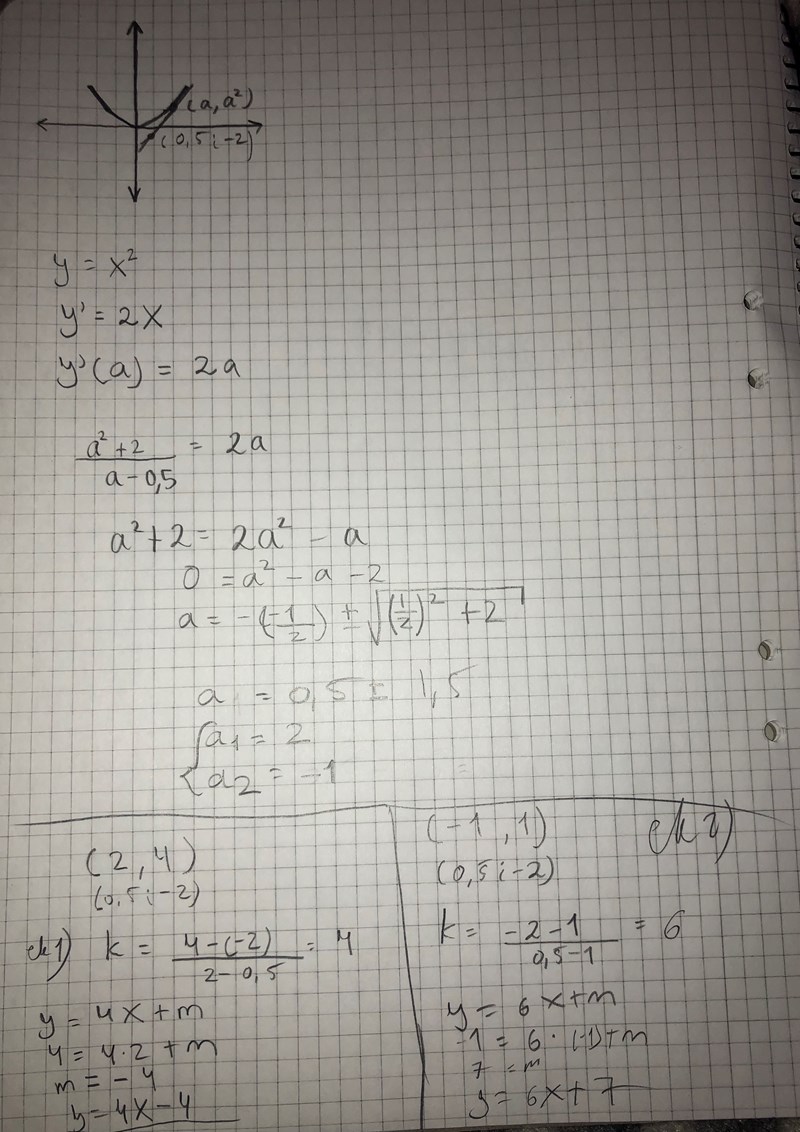 (a, a²)
(0,5;-2)
y = x²
y' = 2x
y'(a) = 2a
a²+2 / a-0,5 = 2a
a²+2 = 2a² - a
0 = a² - a - 2
a = -(-1/2) ± √((1/2)² + 2)
a = 0,5 ± 1,5
{a1 = 2
{a2 = -1
(2,4)
(0,5;-2)
ek1) k = 4-(-2) / 2-0,5 = 4
y = 4x+m
4 = 4·2 +m
m = -4
y = 4x-4
(-1,1) ek2)
(0,5;-2)
k = -2-1 / 0,5-1 = 6
y = 6x+m
-1 = 6·(-1)+m
7 = m
y = 6x+7